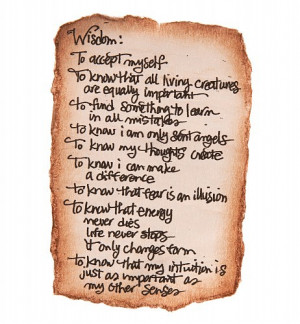 Wisdom:
To accept myself
To know that all living creatures
are equally important
to find something to learn
in all mistakes
to know i am only sent angels
To know my thoughts create
To know i can make
a difference
to know that fear is an illusion
to know that energy
never dies
life never stops
it only changes form
to know that my intuition is
just as important as
my other senses